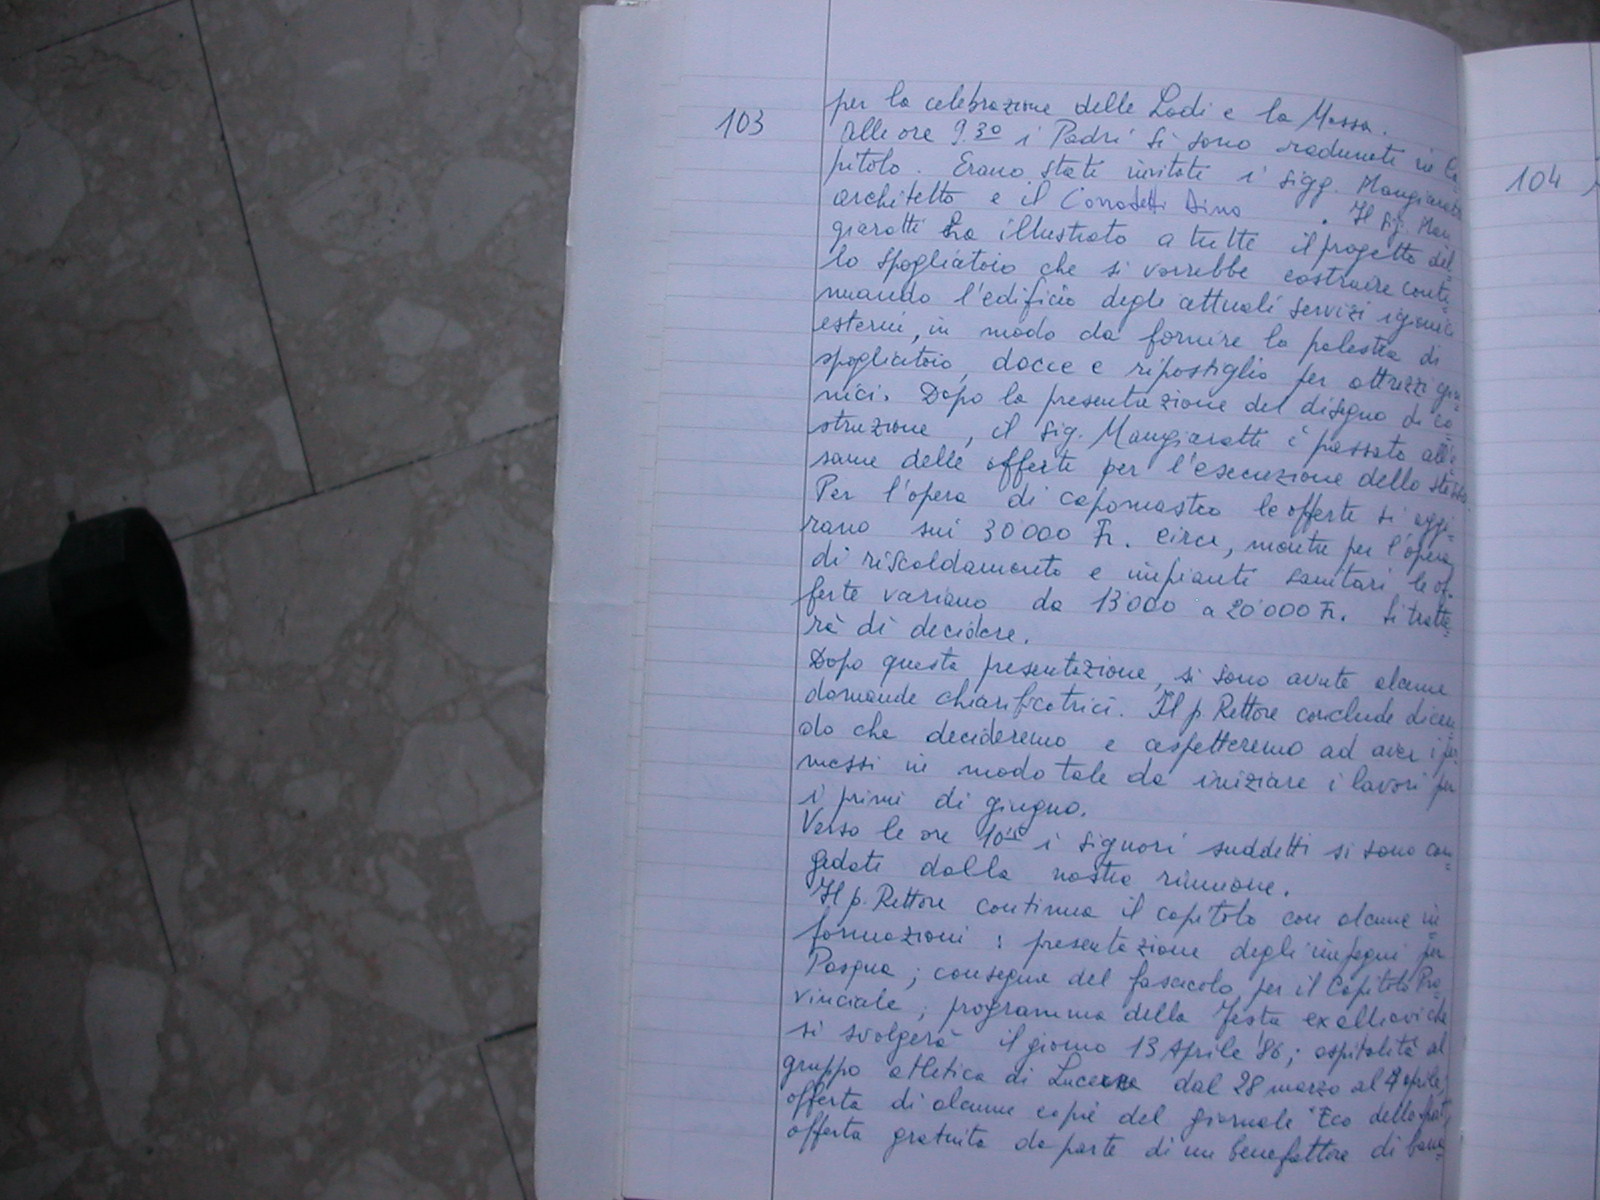 103
per la celebrazione delle Lodi e la Messa.
Alle ore 9.30 i Padri si sono radunati in Ca-
pitolo. Erano stati invitati i sigg. Mangiarotti
architetto e il Corradetti Dino . Il sig. Man
giarotti ha illustrato a tutti il progetto del-
lo spogliatoio che si vorrebbe costruire conti-
nuando l'edificio degli attuali servizi igienici
esterni, in modo da fornire la palestra di
spogliatoio, docce e ripostiglio per attrezzi gin-
nici. Dopo la presentazione del disegno di co-
struzione, il sig. Mangiarotti è passato all'e-
same delle offerte per l'esecuzione dello stesso.
Per l'opera di capomastro le offerte si aggi-
rano sui 30000 Fr. circa, mentre per l'opera
di riscaldamento e impianti sanitari le of-
ferte variano da 13'000 a 20'000 Fr. Si tratte-
rà di decidere.
Dopo questa presentazione, si sono avute alcune
domande chiarificatrici. Il p. Rettore conclude dicen-
do che decideremo e aspetteremo ad aver i per-
messi in modo tale da iniziare i lavori per
i primi di giugno.
Verso le ore 10 i signori suddetti si sono con-
gedati dalla nostra riunione.
Il p. Rettore continua il capitolo con alcune in-
formazioni: presentazione degli impegni per
Pasqua; consegna del fascicolo per il Capitolo Pro-
vinciale; programma della Festa exallievi che
si svolgerà il giorno 13 Aprile '86; ospitalità al
gruppo atletica di Lucerna dal 28 marzo al 4 aprile;
offerta di alcune copie del giornale "Eco dello
offerta gratuita da parte di un benefattore di
104